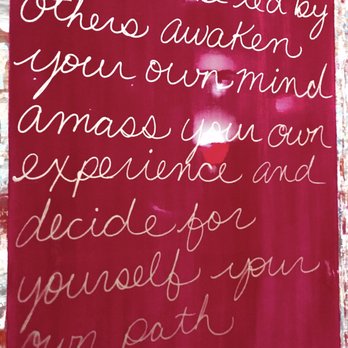 led by
others awaken
your own mind
amass your own
experience and
decide for
yourself your
own path